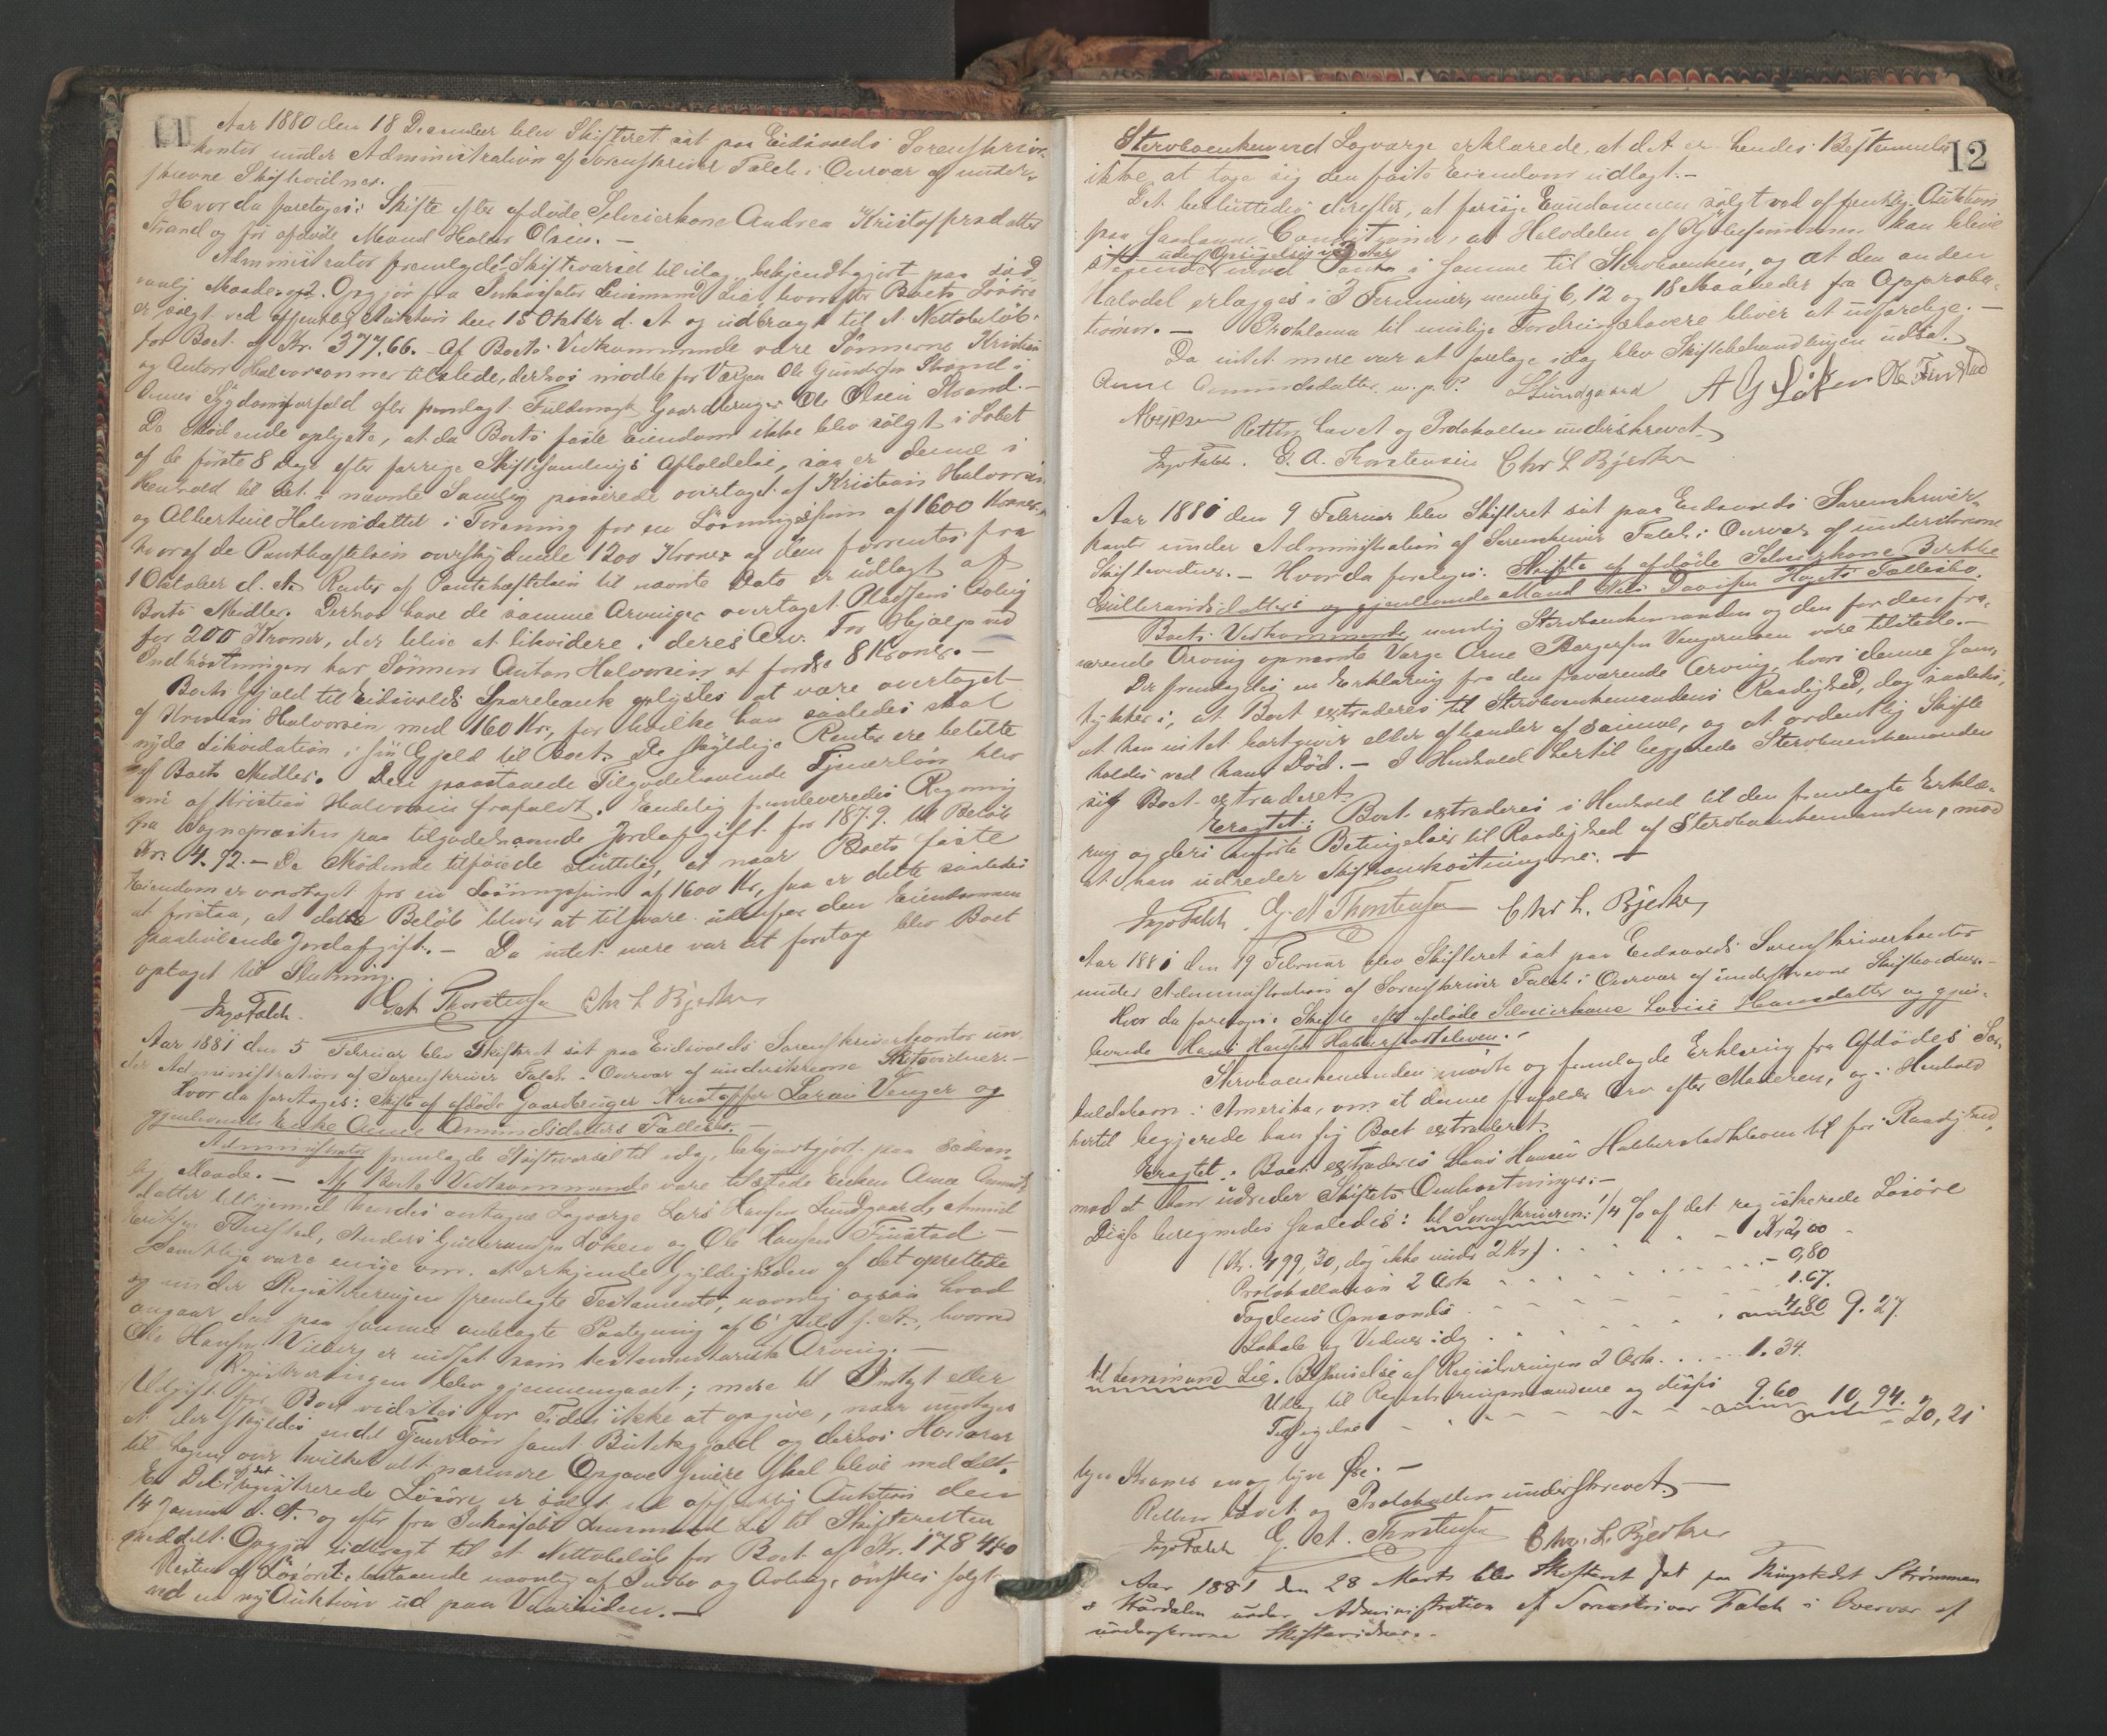 11
Aar 1880 den 18 December blev Skifteret sat paa Eidsvolds Sorenskriver-
kontor under Administration af Sorenskriver Falch i Overvær af under-
skrevne Skiftevidner.
Hvor da foretages: Skifte efter afdøde Selveierkone Andrea Kristoffersdatter
Strand og før afdøde Mand Halvor Olsen. –
Administrator fremlagde 1. Skiftevarsel til idag, bekjendtgjort paa sæd-
vanlig Maade, og 2. Opgjør fra Inkassator Lensmand Lie, hvorefter Boets Løsøre
er solgt ved offentlig Auktion den 15 Oktbr d. A. og udbragt til et Nettobeløb
for Boet af Kr. 377,66. – Af Boets Vedkommende vare Sønnerne Kristian
og Anton Halvorsønner tilstede, derhos mødte for Værgen Ole Gundersen Strand i
dennes Sygdomsforfald efter fremlagt Fuldmagt Gaardbruger Ole Olsen Strand. –
De Mødende oplyste, at da Boets faste Eiendom ikke blev solgt i Løbet
af de første 8 Dage efter forrige Skiftesamlings Afholdelse, saa er denne i
Henhold til det i nævnte Samling passerede overtaget af Kristian Halvorsen
og Albertine Halvorsdatter i Forening for en Løsningssum af 1600 Kroner,
hvoraf de Panthæftelsen overskydende 1200 Kroner af dem forrentes fra
1 Oktober d. A. Renter af Pantehæftelsen til nævnte Dato er udlagt af
Boets Midler. Derhos have de samme Arvinger overtaget Pladsens Avling
for 200 Kroner, der blive at likvidere i deres Arv. For Hjælp ved
Indhøstningen har Sønnen Anton Halvorsen at fordre 8 Kroner. –
Boets Gjæld til Eidsvolds Sparebank oplystes at være overtaget
af Kristian Halvorsen med 160 Kr., for hvilke han saaledes skal
nyde Likvidation i sin Gjæld til Boet. De skyldige Renter ere betalte
af Boets Midler. Den paastaaede Tilgodehavende Tjenerløn blev
nu af Kristian Halvorsen frafaldt. Endelig fremleveredes Regning
fra Sognepresten paa tilgodehavende Jordafgift for 1879. til Beløb
Kr. 4.92. – De Mødende tilføiede sluttelig, at naar Boets faste
Eiendom er overtaget for en Løsningssum af 1600 Kr., saa er dette saaledes
at forstaa, at dette Beløb bliver at tilsvare udenfor den Eiendommen
paahvilende Jordafgift. – Da intet mere var at foretage blev Boet
optaget til Slutning.
Ingv Falch. G. A. Thorstensen Chr L Bjerke
Aar 1881 den 5 Februar blev Skifteret sat paa Eidsvolds Sorenskriverkontor un-
der Administration af Sorenskriver Falch i Overvær af underskrevne Skiftevidner. –
Hvor da foretages: Skifte af afdøde Gaardbruger Kristoffer Larsen Venger og
gjenlevende Enke Anne Amundsdatters Fællesbo. –
Administrator fremlagde Skiftevarsel til idag, bekjendtgjort paa sædvan-
lig Maade. – Af Boets Vedkommende vare tilstede Enken Anne Amunds-
datter tilligemed hendes antagne Lagværge Lars Hansen Lundgaard, Amund
Eriksen Finstad, Anders Gulbrandsen Løken og Ole Hansen Finstad. –
Samtlige vare enige om at erkjende Gyldigheden af det oprettede
og under Registreringen fremlagte Testamente, navnlig ogsaa hvad
angaar den paa samme anbragte Paategning af 6 Juli f. A., hvorved
Ole Hansen Viberg er indsat som testamentarisk Arving. –
Registreringen blev gjennemgaaet; mere til Indtægt eller
Udgift for Boet vidstes for Tiden ikke at opgive, naar undtages
at der skyldes endel Tjenerløn samt Butikgjæld og derhos Honorar
til Lægen, over hvilket alt nærmere Opgave senere skal blive meddelt.
En Del af det registrerede Løsøre er solgt ved offentlig Auktion den
14 Januar d. A. og efter fra Inkassator Lensmand Lie til Skifteretten
meddelt Opgjør udbragt til et Nettobeløb for Boet af Kr. 178 4
Resten af Løsøret, bestaaende navnlig af Indbo og Avling, ønskes solgt
ved en ny Auktion ud paa Vaarsiden. –
12
Stervboenken ved Lagværge erklærede, at det er hendes Bestemmelse
ikke at tage sig den faste Eiendom udlagt. –
Det besluttedes derefter, at forsøge Eiendommen solgt ved offentlig Auktion
paa saadanne Conditioner, at Halvdelen af Kjøbesummen kan blive
uden Opsigelse i 2 Aar
staaende mod Pant i samme til Stervboenken, og at den anden
Halvdel erlægges i 3 Terminer, nemlig 6, 12 og 18 Maaneder fra Approba-
tionen. – Proklama til mulige Fordringshavere bliver at udfærdige. –
Da intet mere var at foretage idag blev Skiftebehandlingen udsat.
Anne Amundsdatter m. p. P. L Lundgaard A G Løken O H Finstad
Retten hævet og Protokollen underskrevet.
Ingv Falch. G. A. Thorstensen Chr L Bjerke
Aar 1881 den 9 Februar blev Skifteret sat paa Eidsvolds Sorenskriver-
kontor under Administration af Sorenskriver Falch i Overvær af underskrevne
Skiftevidner. – Hvor da foretages: Skifte af afdøde Selveierkone Birthe
Gulbrandsdatters og gjenlevende Mand Nils Davidsen Høgets Fællesbo.
Boets Vedkommende, nemlig Stervboenkemanden og den for den fra-
værende Arving opnævnte Værge Arne Borgersen Vengermoen vare tilstede. –
Der fremlagdes en Erklæring fra den fraværende Arving, hvori denne sam-
tykker i, at Boet extraderes til Stervboenkemandens Raadighed, dog saaledes,
at han intet bortgiver eller afhænder af samme, og at ordentlig Skifte
holdes ved hans Død. – I Henhold hertil begjærede Stervboenkemanden
sig Boet extraderet.
Eragtet: Boet extraderes i Henhold til den fremlagte Erklæ-
ring og deri anførte Betingelser til Raadighed af Stervboenkemanden, mod
at han udreder Skifteomkostningerne. –
Ingv Falch. G. A. Thorstensen Chr L. Bjerke
Aar 1881 den 19 Februar blev Skifteret sat paa Eidsvolds Sorenskriverkontor
under Administration af Sorenskriver Falch i Overvær af underskrevne Skiftevidner. –
Hvor da foretages: Skifte efter afdøde Selveierkone Lovise Hansdatter og gjen-
levende Hans Hansen Habberstadeleven. –
Stervboenkemanden mødte og fremlagde Erklæring fra Afdødes Sær-
kuldsbarn i Amerika, om at denne frafalder Arv efter Moderen, og i Henhold
hertil begjerede han sig Boet extraderet.
Eragtet: Boet extraderes Hans Hansen Habberstadeleven til fri Raadighed,
mod at han udreder Skiftets Omkostninger. –
Disse beregnedes saaledes: til Sorenskriveren: 1/4 % af det registrerede Løsøre
(Kr. 499,30, dog ikke under 2 Kr.) . . . . Kr. 2,00
Protokollation 2 Ark . . . . - 0,80
Fogdens Opnævnelse . . . . 1.67.
Lokale og Vidner idag . . . . 4,80 9.27.
til Lensmand Lie. Beskrivelse af Registreringen 2 Ark. . . . 1.34.
Udlæg til Registreringsmændene og disses
Tilsigelse . . . . 9.60 10,94.
- 20,21
tyve Kroner en og tyve Øre. –
Retten hævet og Protokollen underskrevet. –
Ingv Falch G. A. Thorstensen Chr. L. Bjerke
Aar 1881 den 28 Marts blev Skifteret sat paa Thingstedet Strømmen
i Hurdalen under Administration af Sorenskriver Falch i Overvær af
underskrevne Skiftevidner. –